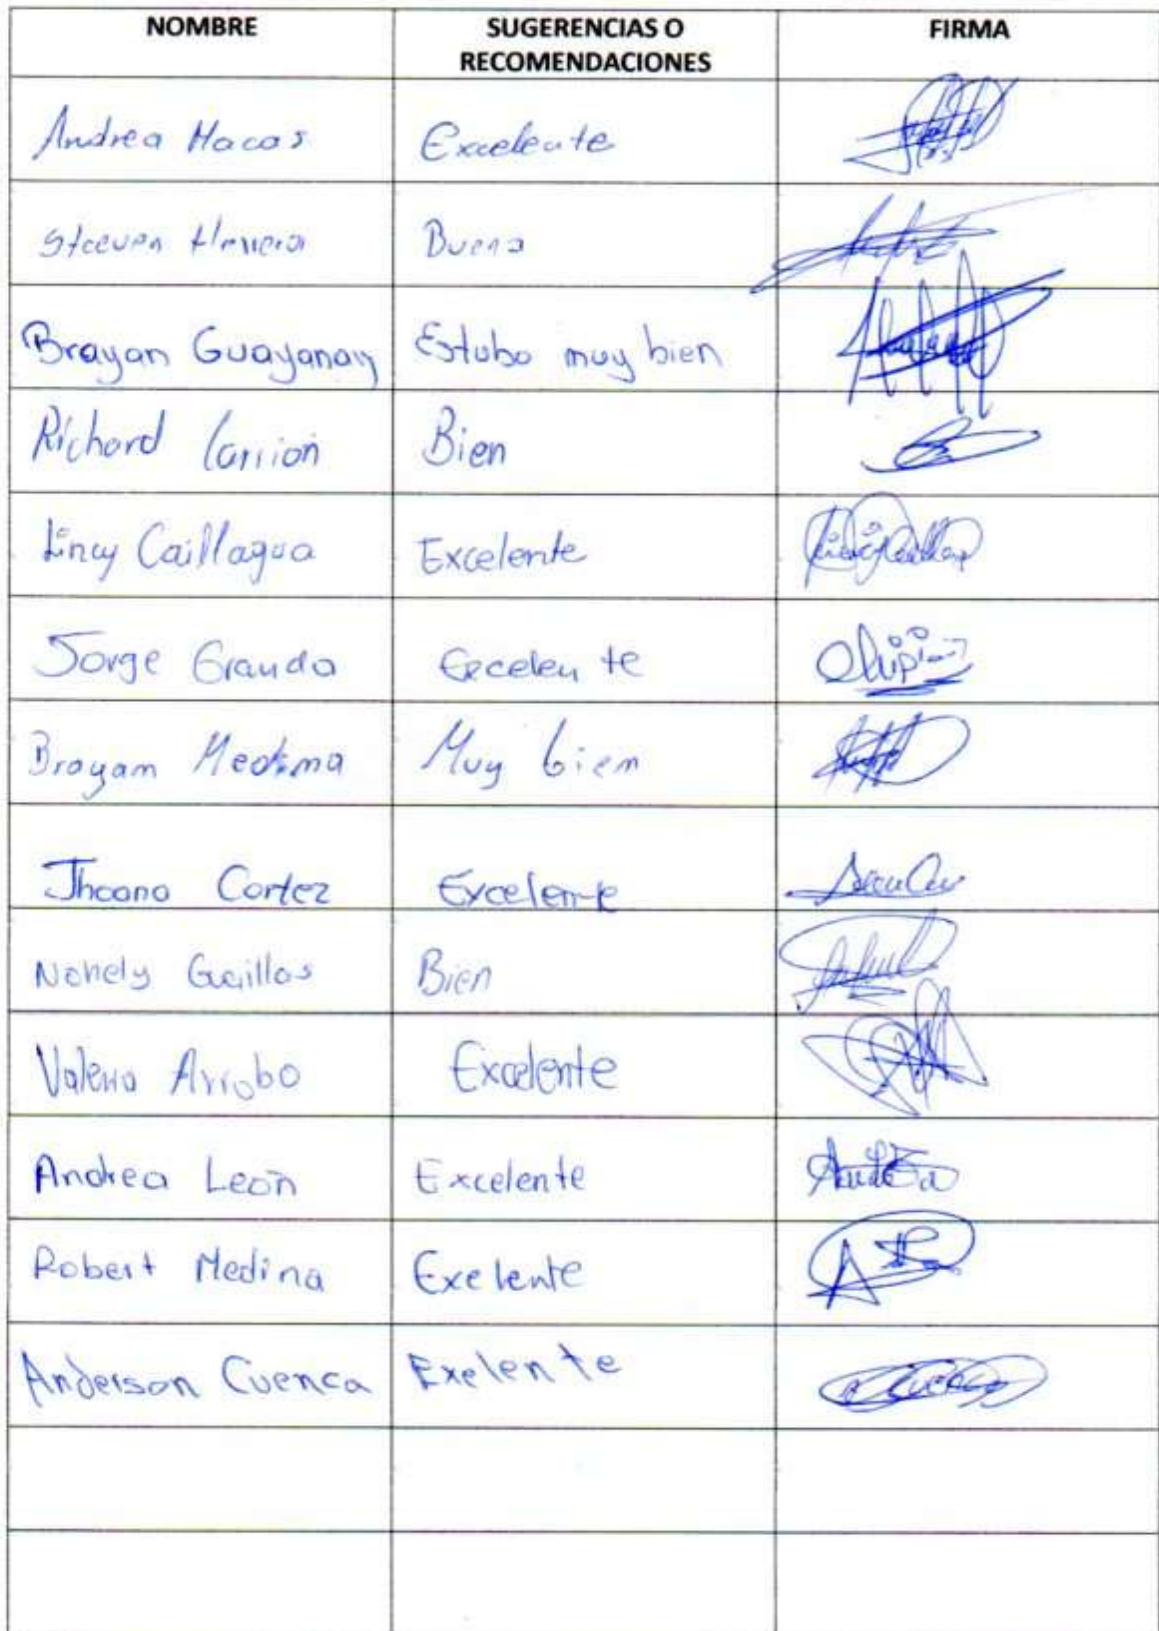 NOMBRE SUGERENCIAS O RECOMENDACIONES FIRMA
Andrea Macas Excelente
Steeven Herrera Buena
Brayan Guayanay Estubo muy bien
Richard Carrión Bien
Lincy Caillagua Excelente
Jorge Granda Excelente
Brayam Medina Muy bien
Jhoana Cortez Excelente
Nohely Guaillas Bien
Valeria Arrobo Excelente
Andrea León Excelente
Robert Medina Exelente
Anderson Cuenca Exelente